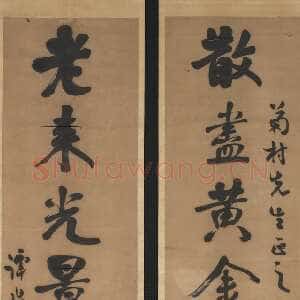 菊村先生正之
散盡黄金
老來光景
譚
Shufawang.CN